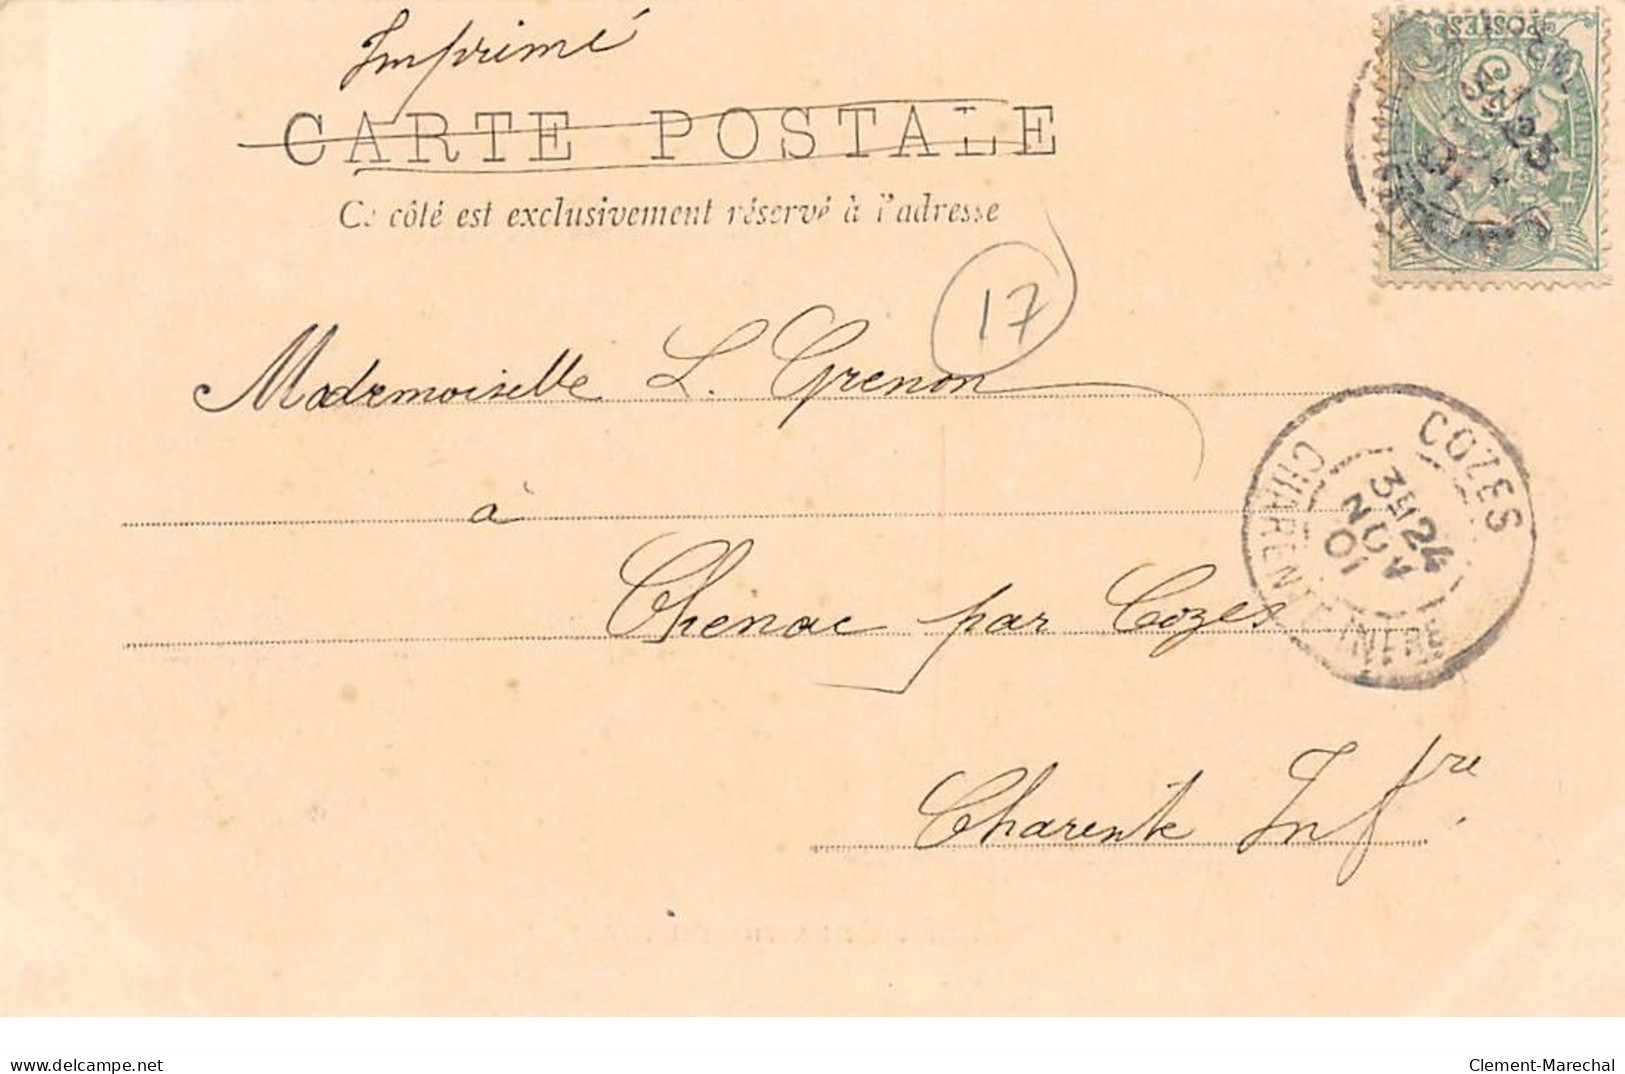 Imprimé
CARTE POSTALE
Ce côté est exclusivement réservé à l'adresse
17
Mademoiselle L. Grenon
à
Chenac par Cozes
Charente Inf.re
COZES
3E 24
NOV
01
CHARENTE INFRE
POSTES
23
01
delcampe.net
Clement-Marechal